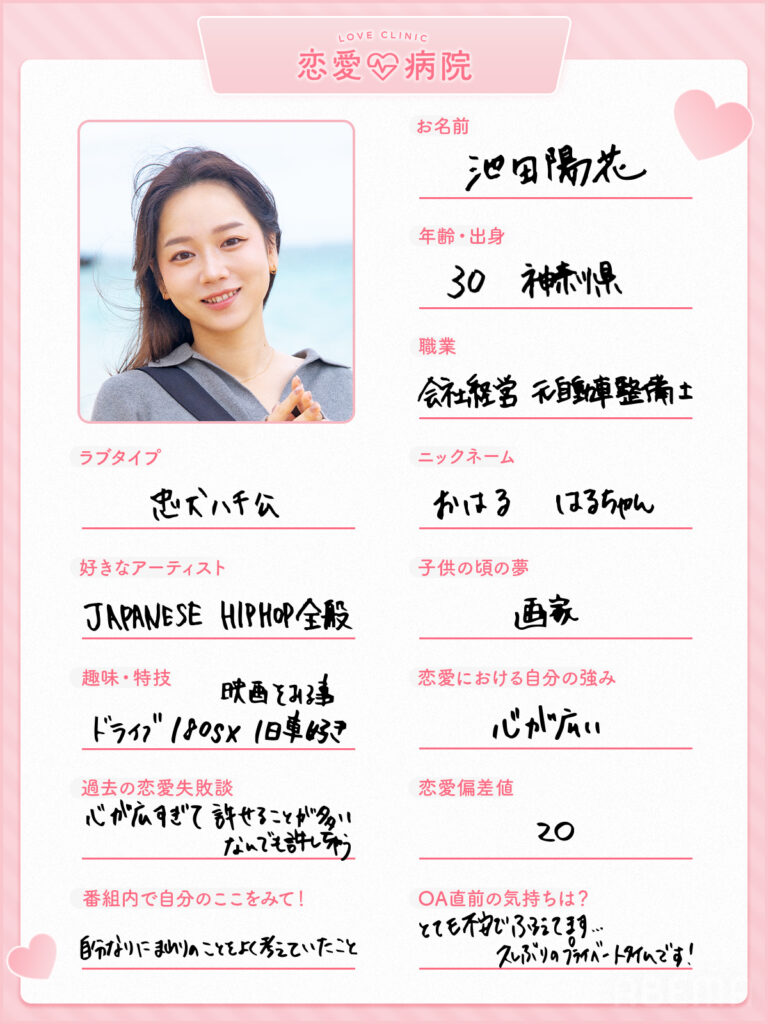 LOVE CLINIC
恋愛病院
お名前
池田陽花
年齢・出身
30 神奈川県
職業
会社経営 元自動車整備士
ラブタイプ
忠犬ハチ公
ニックネーム
おはる はるちゃん
好きなアーティスト
JAPANESE HIPHOP全般
子供の頃の夢
画家
趣味・特技
映画をみる事
ドライブ 180SX 旧車好き
恋愛における自分の強み
心が広い
過去の恋愛失敗談
心が広すぎて 許せることが多い
なんでも許しちゃう
恋愛偏差値
20
番組内で自分のここをみて!
自分なりにまわりのことをよく考えていたこと
OA直前の気持ちは?
とても不安でふるえてます...
久しぶりのプライベートタイムです!
ABEMA